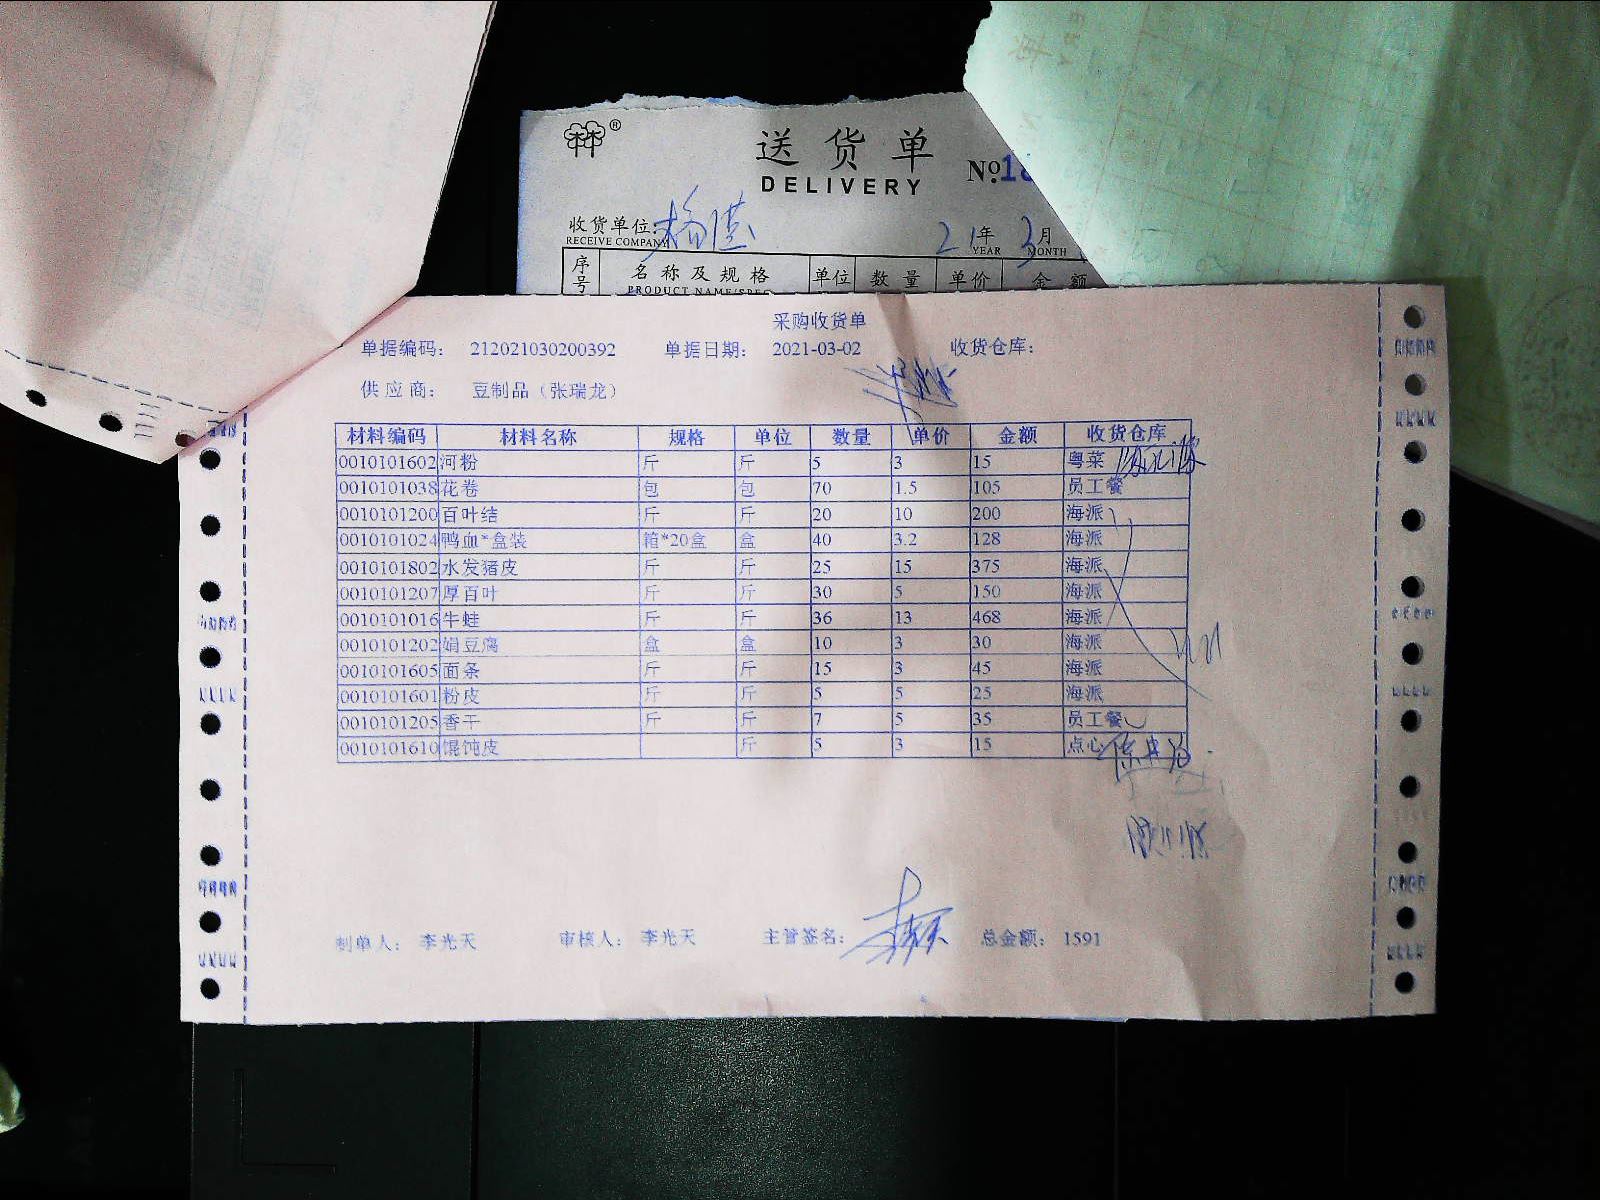 ®
送货单
DELIVERY
No.18
收货单位:
RECEIVE COMPANY
21年3月
YEAR MONTH
序号 名称及规格 单位 数量 单价 金额
PRODUCT NAME/SPEC
采购收货单
单据编码： 212021030200392 单据日期： 2021-03-02 收货仓库：
供应商： 豆制品（张瑞龙）
材料编码 材料名称 规格 单位 数量 单价 金额 收货仓库
0010101602 河粉 斤 斤 5 3 15 粤菜
0010101038 花卷 包 包 70 1.5 105 员工餐
0010101200 百叶结 斤 斤 20 10 200 海派
0010101024 鸭血*盒装 箱*20盒 盒 40 3.2 128 海派
0010101802 水发猪皮 斤 斤 25 15 375 海派
0010101207 厚百叶 斤 斤 30 5 150 海派
0010101016 牛蛙 斤 斤 36 13 468 海派
0010101202 娟豆腐 盒 盒 10 3 30 海派
0010101605 面条 斤 斤 15 3 45 海派
0010101601 粉皮 斤 斤 5 5 25 海派
0010101205 香干 斤 斤 7 5 35 员工餐
0010101610 馄饨皮 斤 5 3 15 点心
制单人： 李光天 审核人： 李光天 主管签名： 总金额： 1591